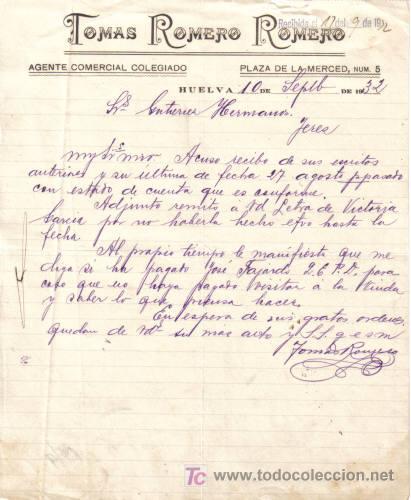 Recibida el 17 del 9 de 1932
TOMAS ROMERO ROMERO
AGENTE COMERCIAL COLEGIADO
PLAZA DE LA MERCED, NUM. 5
HUELVA 10 DE Septb DE 1932
Srs Gutierrez Hermanos.
Jerez
my Sr mio. Acuso recibo de sus escritos
anteriores y su ultima de fecha 27 agosto ppasado
con estado de cuenta que es conforme.
Adjunto remito á Vd Letra de Victoria
Garcia por no haberla hecho otro hasta la
fecha.
Al propio tiempo le manifiesta que me
diga si ha pagado José Fajardo para
caso que no haya pagado visitar á la viuda
y saber lo que piensa hacer.
En espera de sus gratas ordenes
quedan de Vds su mas atto y S.S. q e s m
Tomas Romero
TC
www.todocoleccion.net